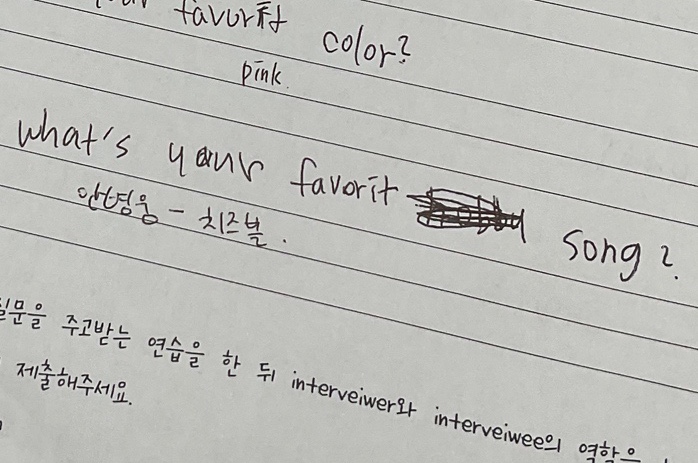 favorit color?
pink.
what's your favorit song?
안영웅 - 치즈볼.
질문을 주고받는 연습을 한 뒤 interveiwer와 interveiwee의 역할을
제출해주세요.